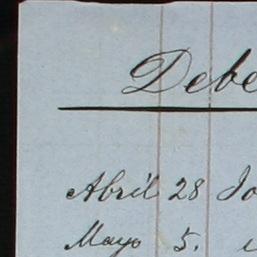 Debe
Abril 28
Mayo 5.